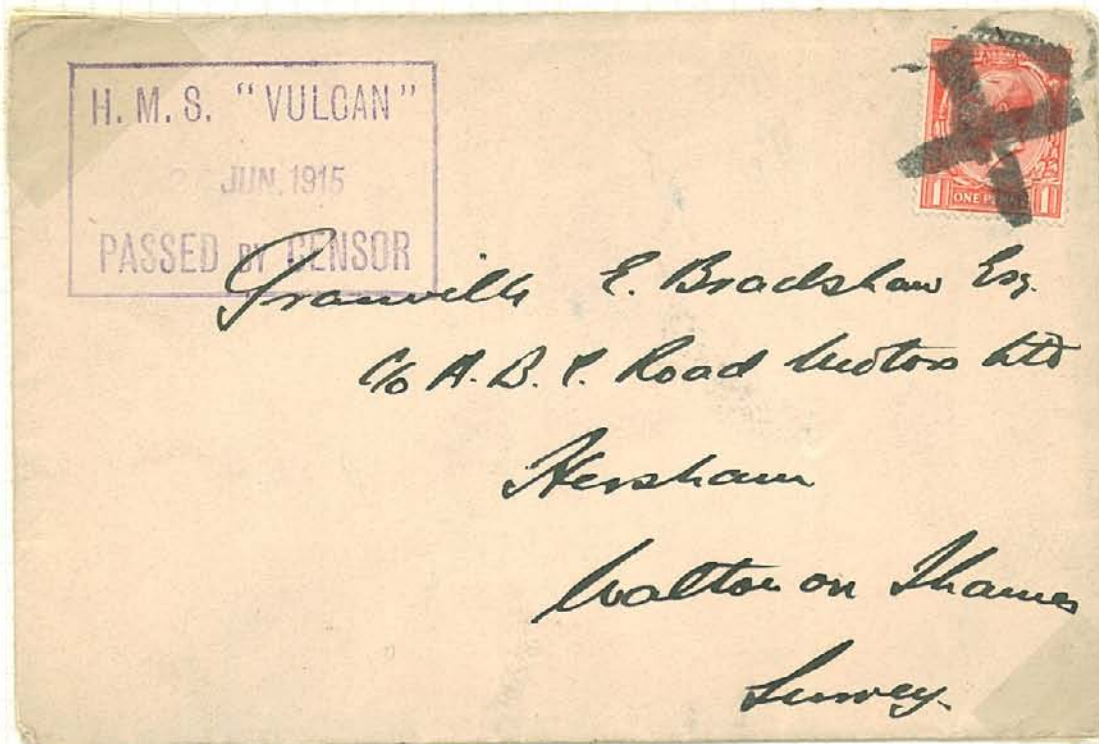 H. M. S. "VULCAN"
2 JUN. 1915
PASSED BY CENSOR
1 ONE PENNY 1
Granville E. Bradshaw Esq.
c/o A.B.C. Road Motors Ltd
Hersham
Walton on Thames
Surrey.